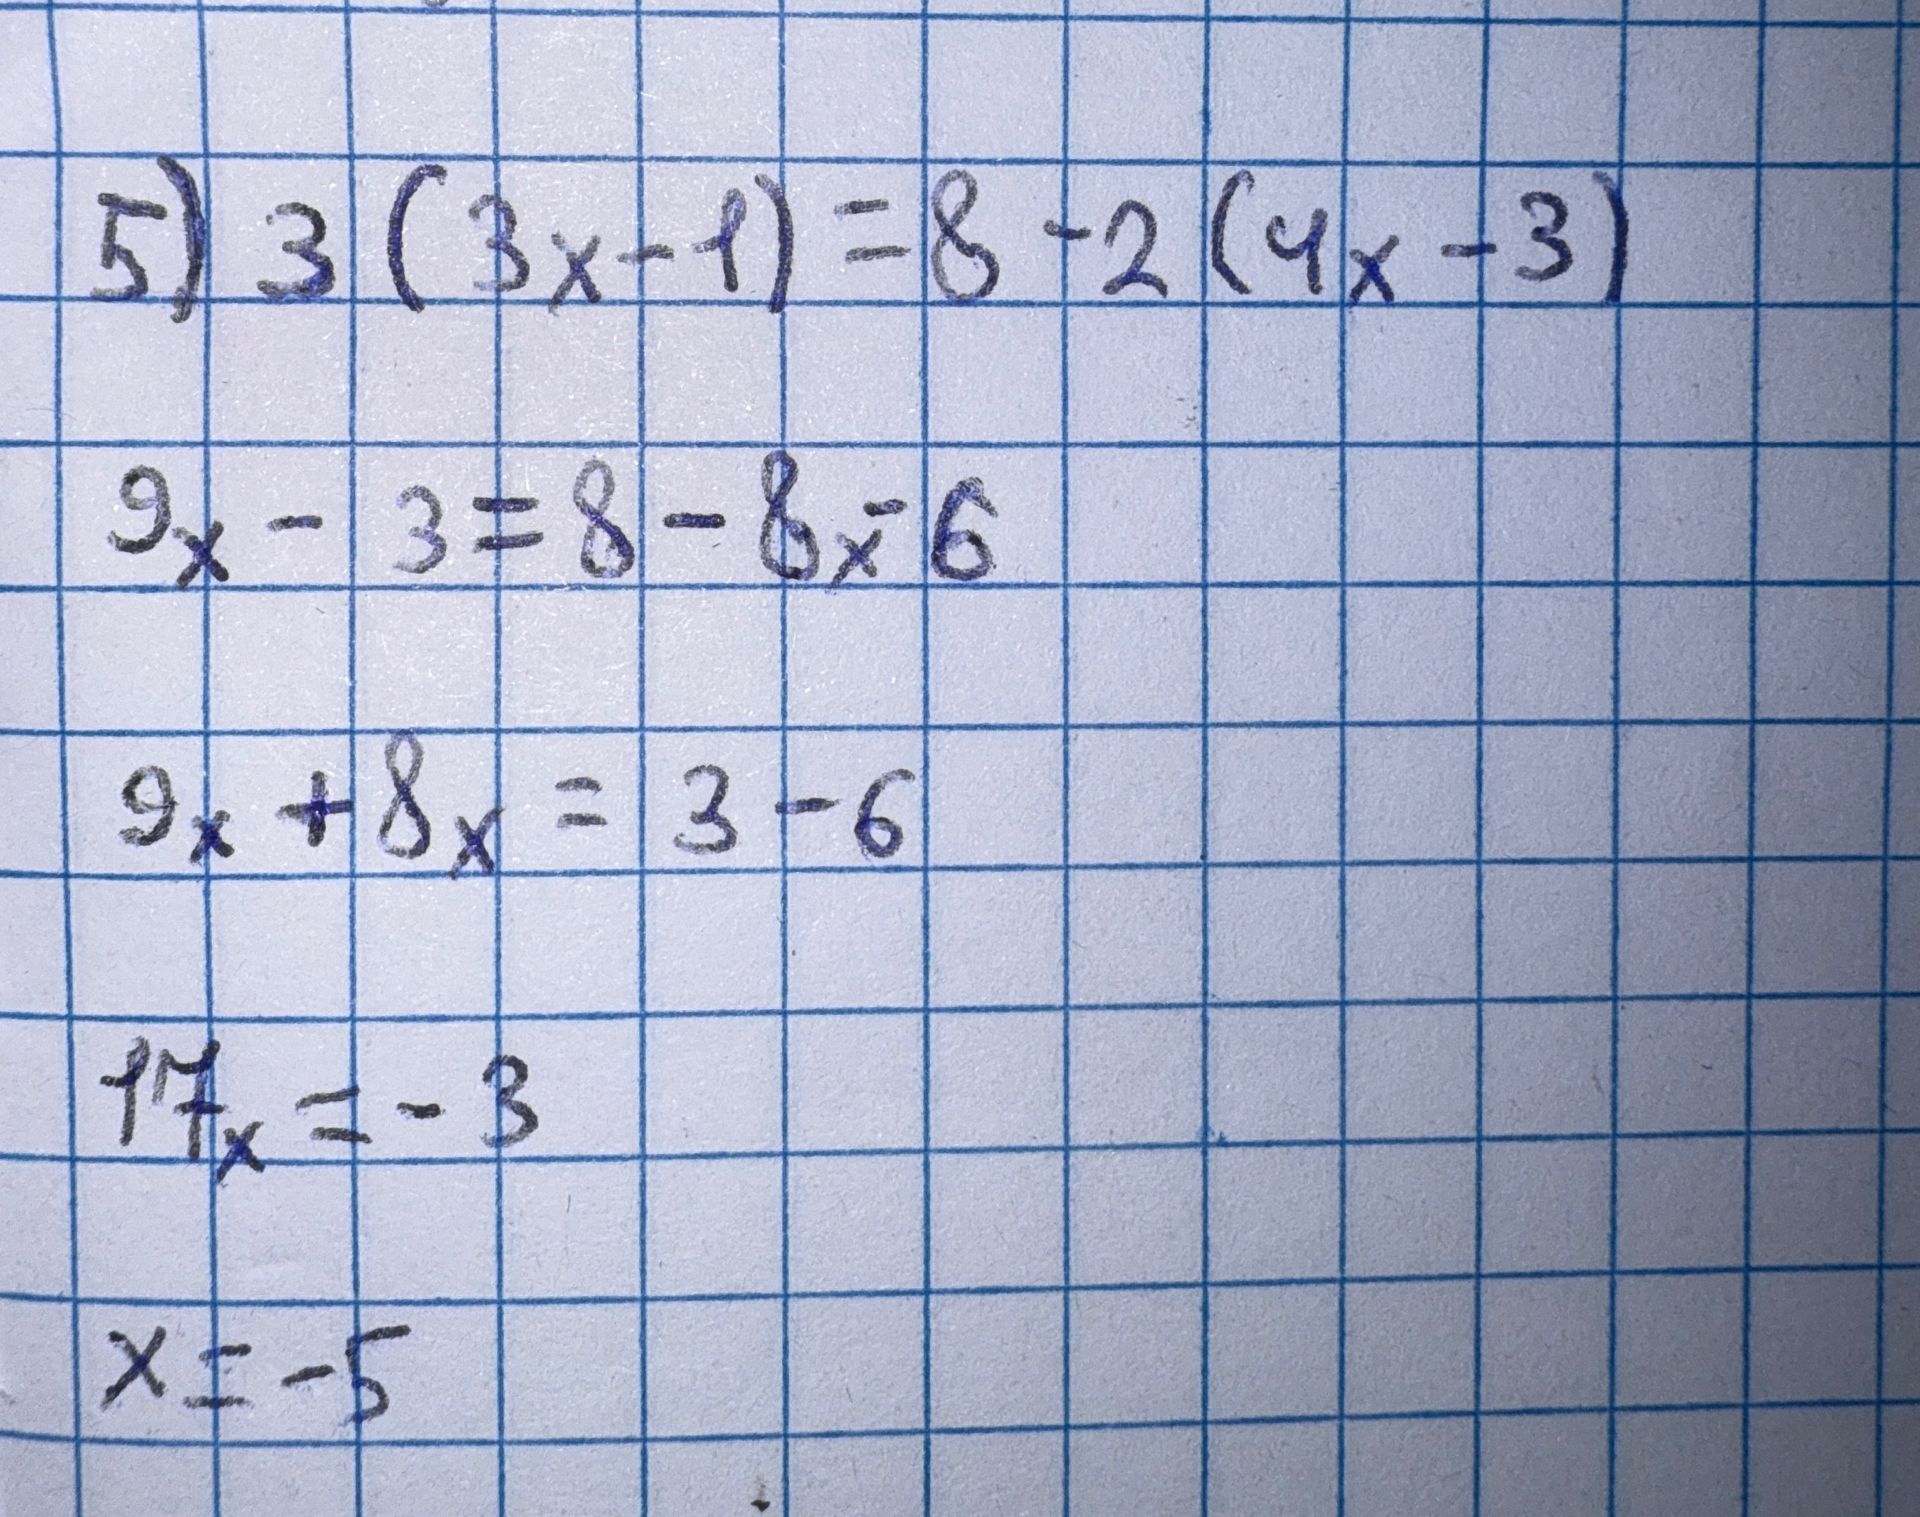 5) 3(3x-1)=8-2(4x-3)
9x-3=8-8x-6
9x+8x=3-6
17x=-3
x=-5